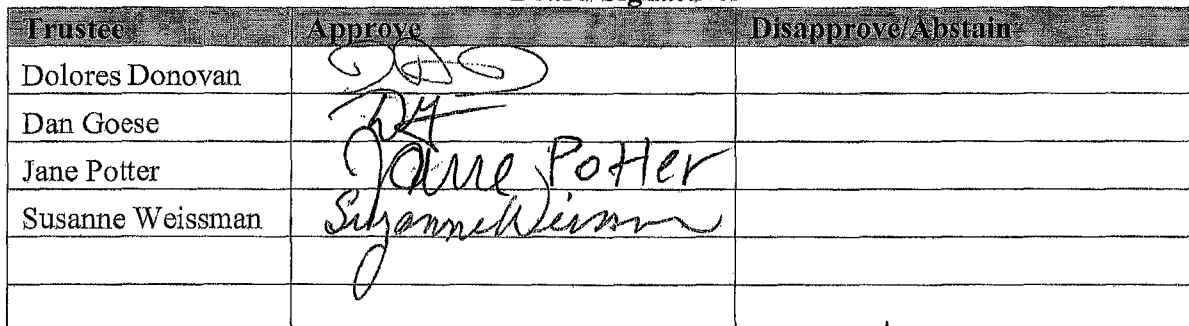 Trustee Approve Disapprove/Abstain
Dolores Donovan
Dan Goese
Jane Potter Jane Potter
Susanne Weissman Suzanne Weissman